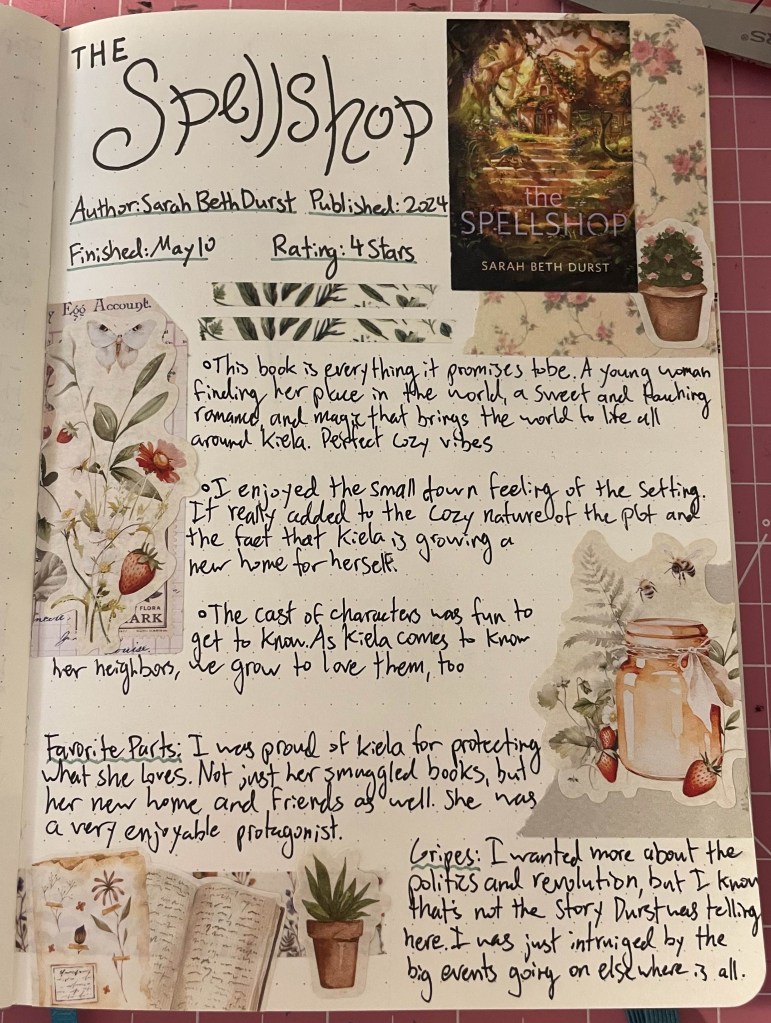 THE
Spellshop
the
SPELLSHOP
SARAH BETH DURST
Author: Sarah Beth Durst Published: 2024
Finished: May 10 Rating: 4 Stars
Egg Account.
∘This book is everything it promises to be. A young woman
finding her place in the world, a sweet and touching
romance, and magic that brings the world to life all
around Kiela. Perfect cozy vibes
∘I enjoyed the small town feeling of the setting.
It really added to the cozy nature of the plot and
the fact that Kiela is growing a
new home for herself.
FLORA
ARK
∘The cast of characters was fun to
get to know. As Kiela comes to know
her neighbors, we grow to love them, too
Favorite Parts: I was proud of Kiela for protecting
what she loves. Not just her smuggled books, but
her new home and friends as well. She was
a very enjoyable protagonist.
Gripes: I wanted more about the
politics and revolution, but I know
that's not the story Durst was telling
here. I was just intruiged by the
big events going on elsewhere is all.